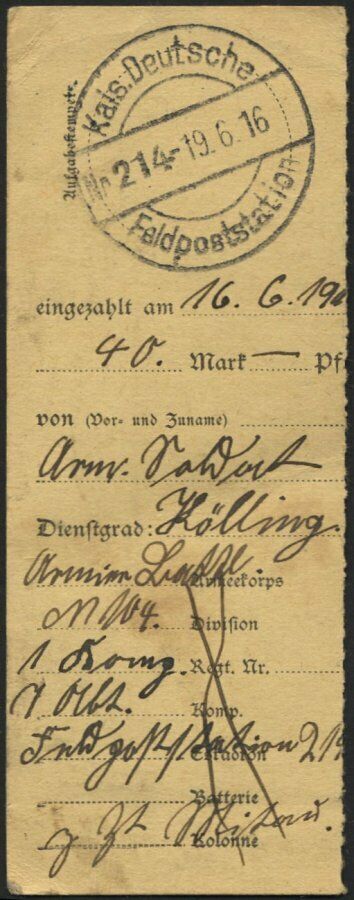 Aufgabestempel.
Kais. Deutsche
Nr. 214 - 19.6.16
Feldpoststation
eingezahlt am 16. 6. 191
40. Mark — Pf
von (Vor- und Zuname)
Arm. Soldat
Dienstgrad: Kölling.
Armier. Batl. Armeekorps
N 104. Division
1 Komp. Regt. Nr.
1 Abt. Komp.
Feldpoststation 214 Eskadron
Batterie
z Zt Mitau. Kolonne